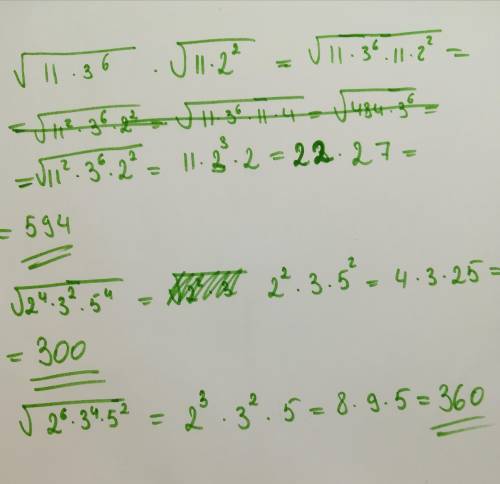 √(11·3⁶) · √(11·2²) = √(11·3⁶·11·2²) =
= √(11²·3⁶·2²) = √(11·3⁶·11·4) = √(484·3⁶) =
= √(11²·3⁶·2²) = 11·3³·2 = 22·27 =
= 594
√(2⁴·3²·5⁴) = 2²·3·5² = 4·3·25 =
= 300
√(2⁶·3⁴·5²) = 2³·3²·5 = 8·9·5 = 360